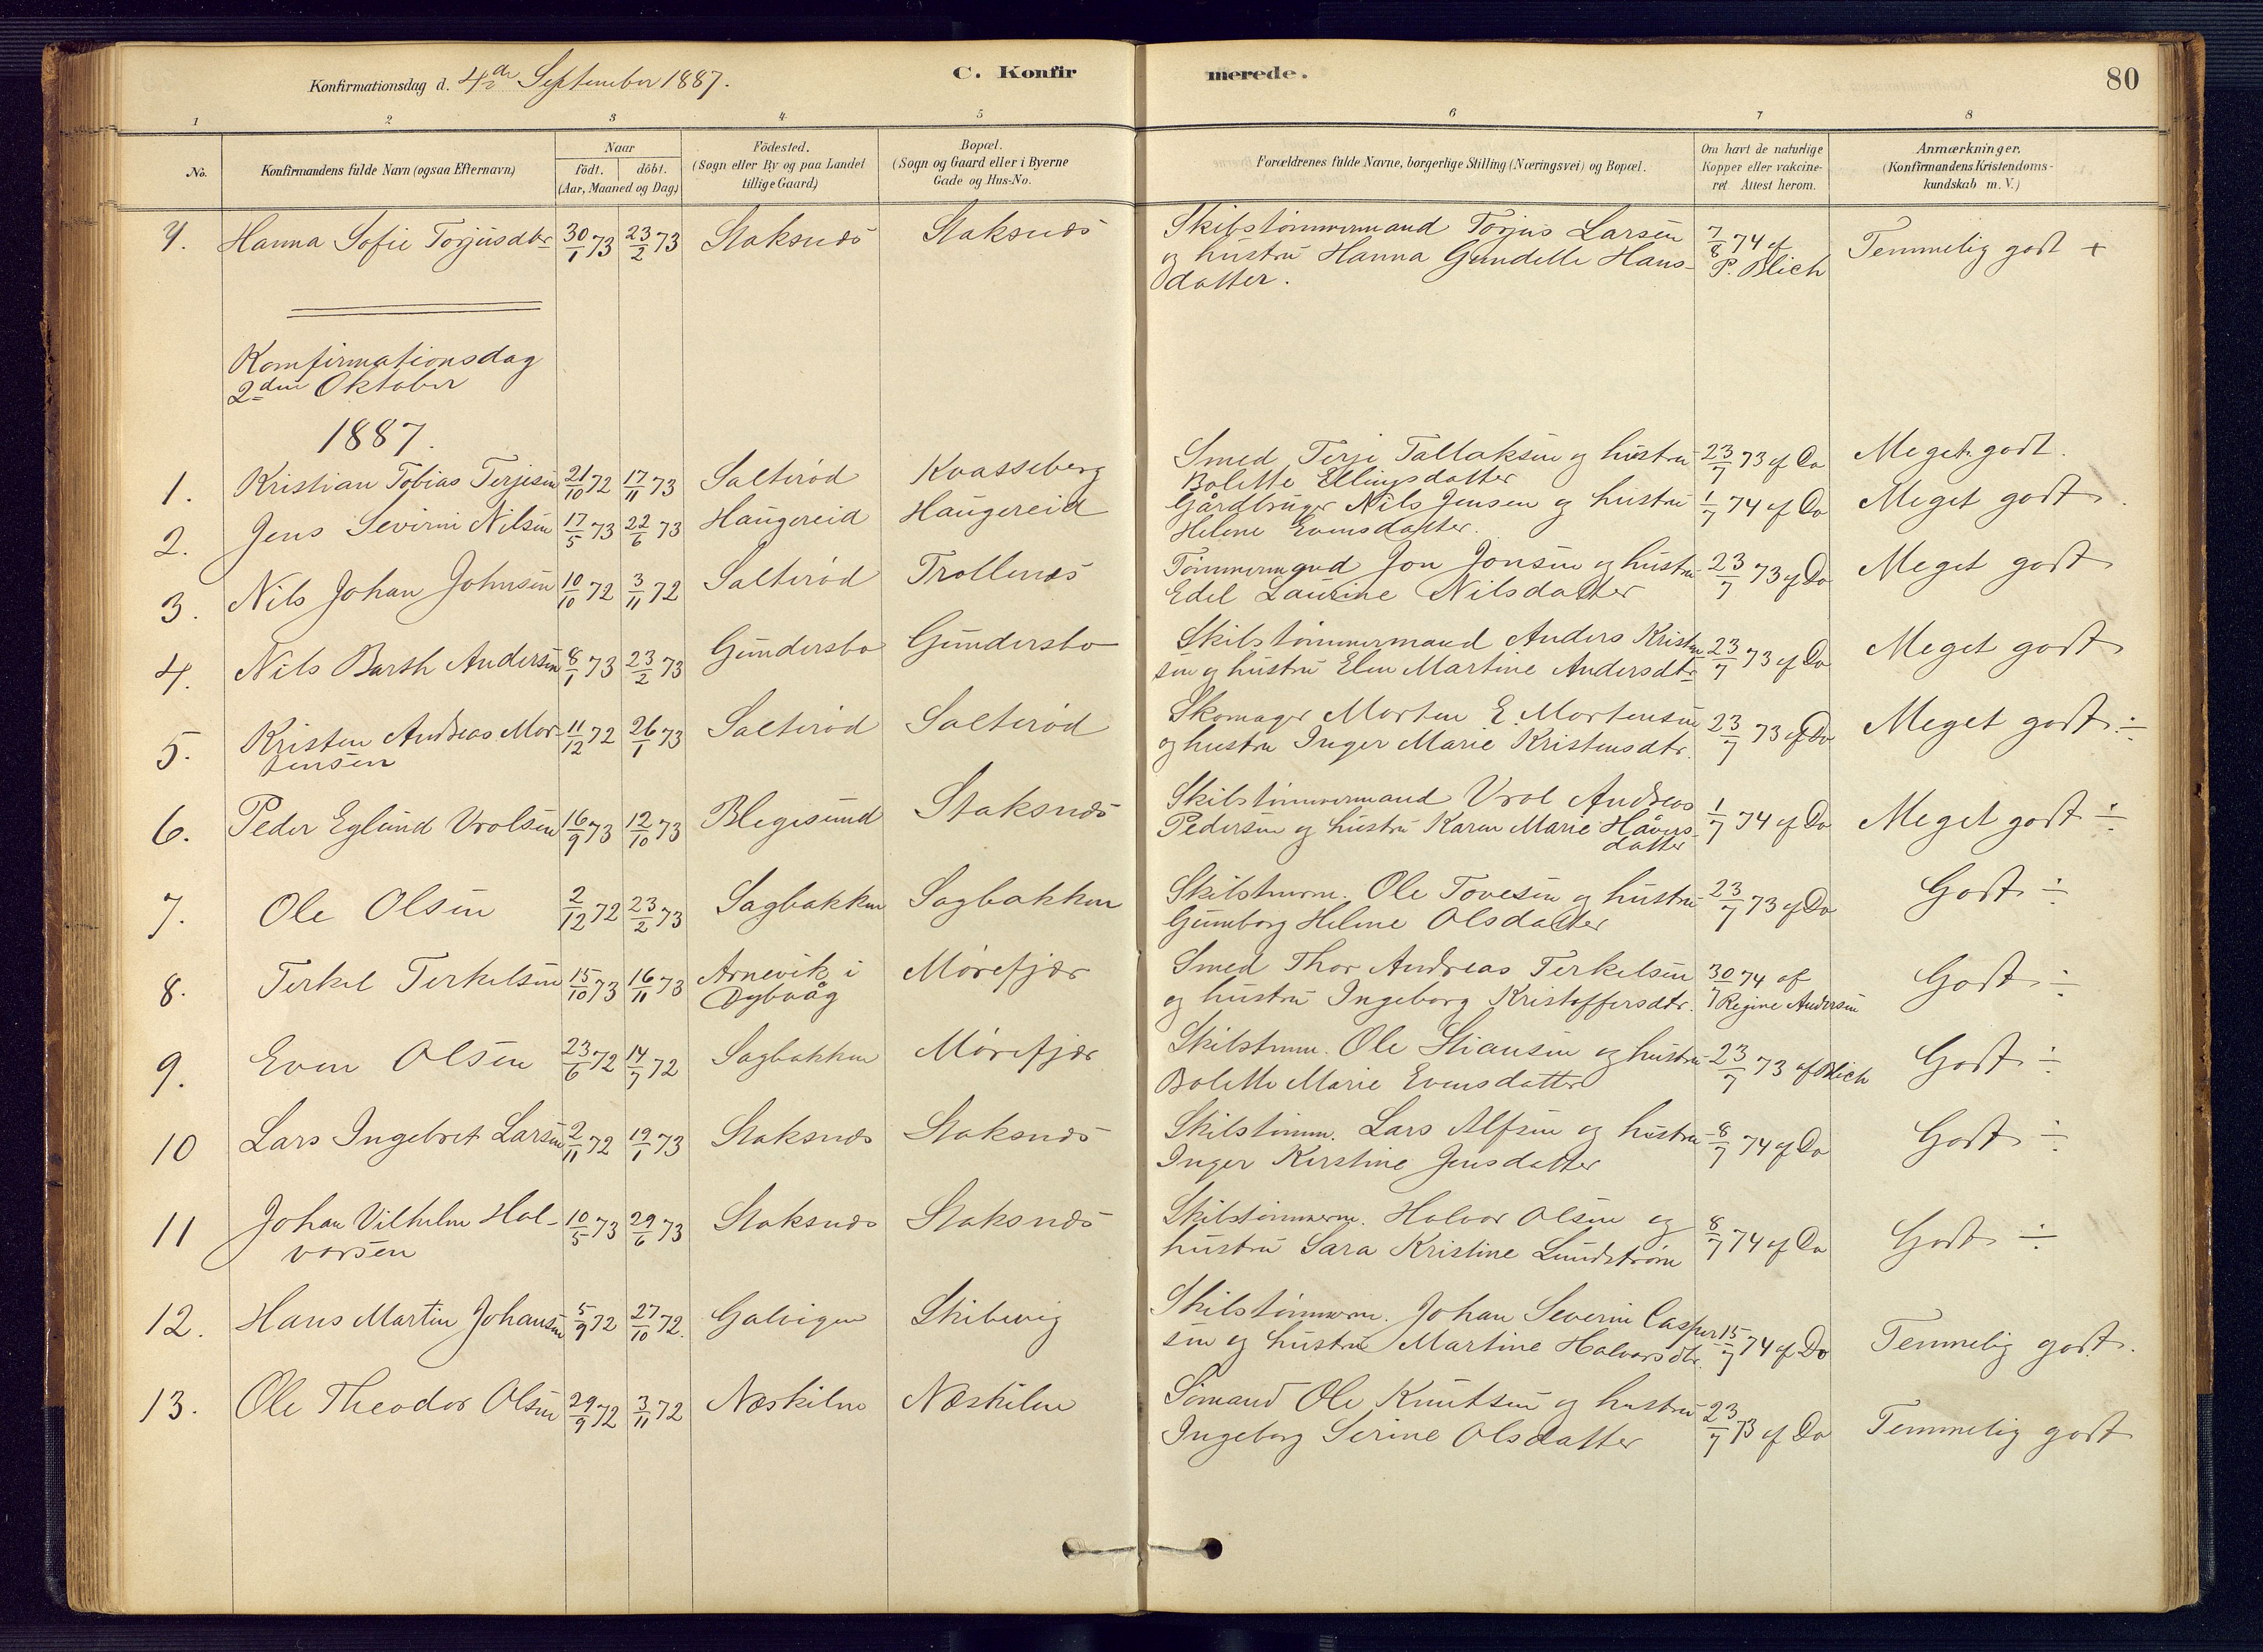 Konfirmationsdag d. 4de September 1887.
C. Konfirmerede.
80
1 2 3 4 5 6 7 8
No.
Konfirmandens fulde Navn (ogsaa Efternavn)
Naar
födt. döbt.
(Aar, Maaned og Dag)
Födested.
(Sogn eller By og paa Landet
tillige Gaard)
Bopæl.
(Sogn og Gaard eller i Byerne
Gade og Hus-No.
Forældrenes fulde Navne, borgerlige Stilling (Næringsvei) og Bopæl.
Om havt de naturlige
Kopper eller vakcine-
ret Attest herom.
Anmærkninger.
(Konfirmandens Kristendoms-
kundskab m. V.)
Y. Hanna Sofie Torjusdtr 30/1 73 23/2 73 Staksnæs Staksnæs Skibstømmermand Torjus Larsen 7/8 74 af Temmelig godt +
og hustru Hanna Gundelle Hans- P. Blich
datter.
Komfirmationsdag
2den Oktober
1887.
1. Kristian Tobias Terjesen 21/10 72 17/11 73 Salterød Kvasseberg Smed Terje Tallaksen og hustru 23/7 73 af Do Meget godt.
Bolette Ellingsdatter
2. Jens Severin Nilsen 17/5 73 22/6 73 Haugereid Haugereid Gårdbruger Nils Jensen og hustru 1/7 74 af Do Meget godt.
Helene Evensdatter.
3. Nils Johan Johnsen 10/10 72 3/11 72 Salterød Trollnæs Tømmermand Jon Jonsen og hustru 23/7 73 af Do Meget godt
Edel Laurine Nilsdatter
4. Nils Barth Andersen 8/1 73 23/2 73 Gundersbo Gundersbo Skibstømmermand Anders Kristen- 23/7 73 af Do Meget godt
sen og hustru Elen Martine Andersdtr
5. Kristen Andreas Mor- 11/12 72 26/1 73 Salterød Salterød Skomager Morten E. Mortensen 23/7 73 af Do Meget godt ÷
tensen og hustru Inger Marie Kristensdtr.
6. Peder Eglund Vrolsen 16/9 73 12/10 73 Blegesund Staksnæs Skibstømmermand Vrol Andreas 1/7 74 af Do Meget godt ÷
Pedersen og hustru Karen Marie Håvers-
datter
7. Ole Olsen 2/12 72 23/2 73 Sagbakken Sagbakken Skibstmrm. Ole Tovesen og hustru 23/7 73 af Do Godt ÷
Gunborg Helene Olsdatter
8. Terkel Terkelsen 15/10 73 16/11 73 Arnevik i Mørefjær Smed Thor Andreas Terkelsen 30/7 74 af Godt ÷
Dybvåg og hustru Ingeborg Kristoffersdtr. Regine Andersen
9. Even Olsen 23/6 72 14/7 72 Sagbakken Mørefjær Skibstmm. Ole Stiansen og hustru 23/7 73 af Blich Godt ÷
Bolette Marie Evensdatter
10 Lars Ingebret Larsen 2/11 72 19/1 73 Staksnæs Staksnæs Skibstømm. Lars Alfsen og hustru 8/7 74 af Do Godt ÷
Inger Kirstine Jensdatter
11 Johan Vilhelm Hal- 10/5 73 29/6 73 Staksnæs Staksnæs Skibstømmerm. Halvor Olsen og 8/7 74 af Do Godt ÷
vorsen hustru Sara Kristine Lundstrøm
12. Hans Martin Johansen 5/9 72 27/10 72. Galvigen Skibevig Skibstømmerm. Johan Severin Casper- 15/7 74 af Do Temmelig godt.
sen og hustru Martine Halvorsdtr.
13. Ole Theodor Olsen 29/9 72 3/11 72 Næskilen Næskilen Sømand Ole Knutsen og hustru 23/7 73 af Do Temmelig godt
Ingeborg Serine Olsdatter